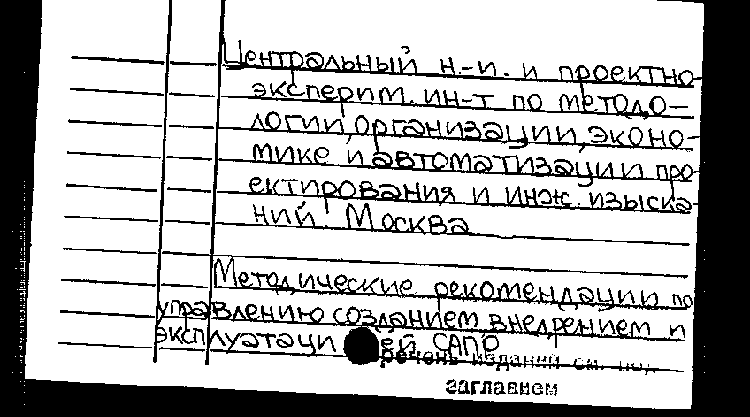 Центральный н.-и. и проектно-
эксперим. ин-т по методо-
логии, организации, эконо-
мике и автоматизации про
ектирования и инж. изыска-
ний. Москва
Методические рекомендации по
управлению созданием внедрением и
эксплуатаци ей САПР
речень изданий см. под
заглавием